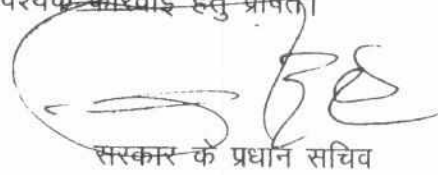 कार्रवाई हेतु प्रेषित।
सरकार के प्रधान सचिव